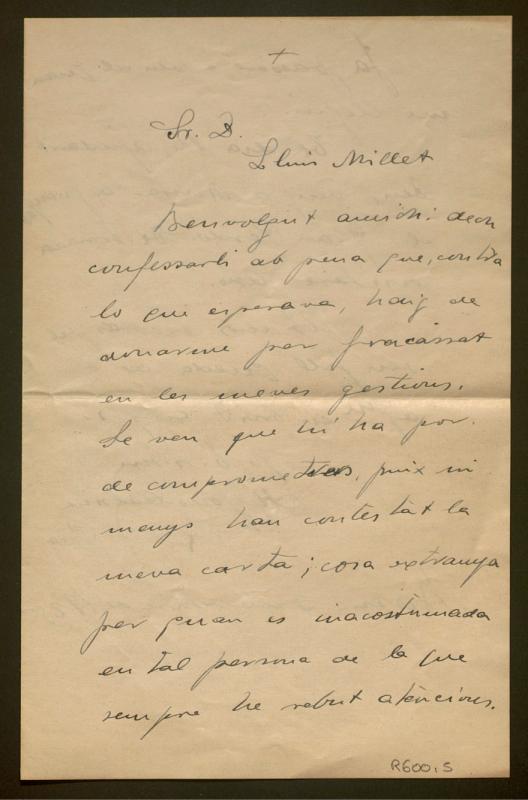 Sr. D.
Lluis Millet
Benvolgut amich: dech
confessarli ab pena que, contra
lo que esperava, haig de
donarme per fracassat
en les meves gestions.
Se veu que hi ha por
de comprometres, puix ni
menys han contestat la
meva carta; cosa extranya
per quan es inacostumada
en tal persona de la que
sempre he rebut atencions.
R600.S